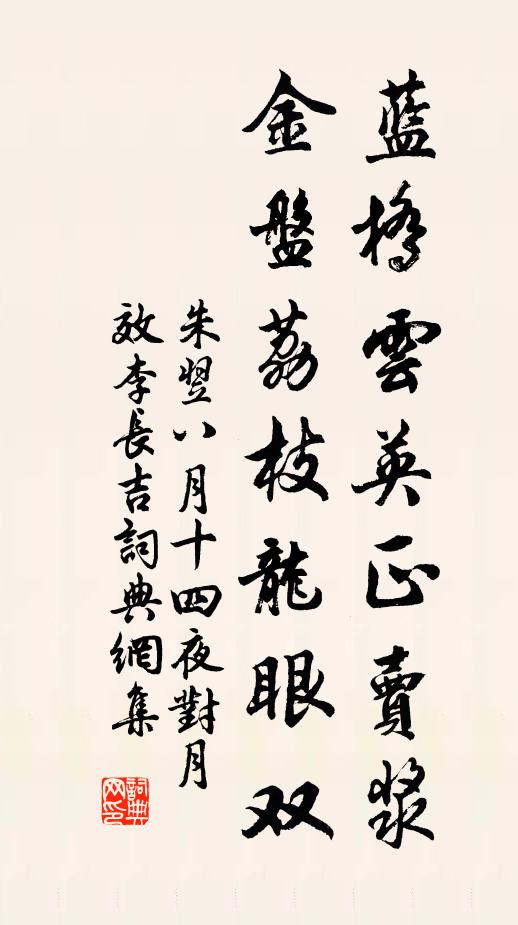 藍橋雲英正賣漿
金盤荔枝龍眼双
朱翌八月十四夜對月
效李長吉詞典網集
詞典
网印